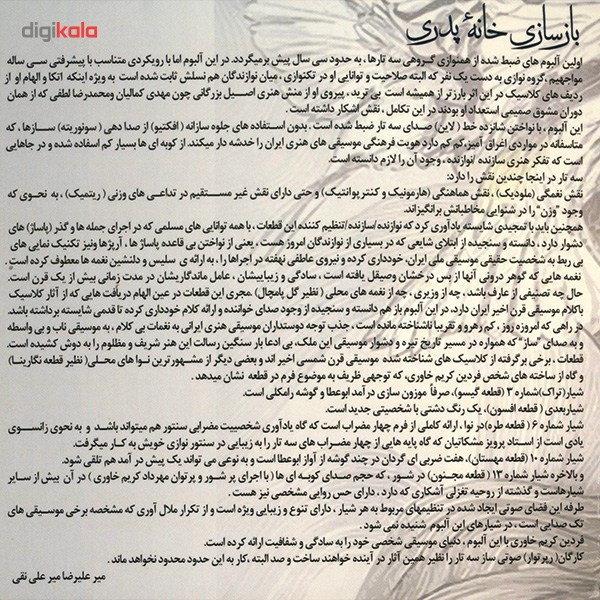 digikala
بازسازی خانهٔ پدری
اولین آلبوم های ضبط شده از همنوازی گروهی سه تارها، به حدود سی سال پیش برمیگردد. در این آلبوم اما با رویکردی متناسب با پیشرفتی سی ساله
مواجهیم، گروه نوازی به دست یک نفر که البته صلاحیت و توانایی او در تکنوازی، میان نوازندگان هم نسلش ثابت شده است به ویژه اینکه اتکا و الهام او از
ردیف های کلاسیک در این اثر بارزتر از همیشه است بی تردید، پیروی او از منش هنری اصیل بزرگانی چون مهدی کمالیان ومحمدرضا لطفی که از همان
دوران مشوق صمیمی استعداد او بودند در این تکامل، نقش اشکار داشته است.
این آلبوم، با نواختن شانزده خط (لاین) صدای سه تار ضبط شده است. بدون استفاده های جلوه سازانه (افکتیو) از صدا دهی (سونوریته) سازها، که
متاسفانه در مواردی اغراق آمیز، کم کم دارد هویت فرهنگی موسیقی های هنری ایران را خدشه دار میکند. از کوبه ای ها بسیار کم اسفاده شده و در جاهایی
است که تفکر هنری سازنده /نوازنده، وجود آن را لازم دانسته است.
سه تار در اینجا چندین نقش را دارد:
نقش نغمگی (ملودیک)، نقش هماهنگی (هارمونیک و کنترپوانتیک) و حتی دارای نقش غیر مستقیم در تداعی های وزنی (ریتمیک)، به نحوی که
وجود "وزن" را در شنوایی مخاطبانش برانگیزاند.
همچنین باید با تمجیدی شایسته یادآوری کرد که نوازنده/سازنده/تنظیم کننده این قطعات، با همه توانایی های مسلمی که در اجرای جمله ها و گذر (پاساژ) های
دشوار دارد، دانسته و سنجیده از ابتلای شایعی که در بسیاری از نوازندگان امروز هست، یعنی از نواختن بی قاعده پاساژ ها، آرپژها ونیز تکنیک نمایی های
بی ربط به شخصیت حقیقی موسیقی ملی ایران، خودداری کرده و نیروی عاطفی نهفته در اجراها را، به ارائه ی سلیس و دلنشین نغمه ها معطوف کرده است.
نغمه هایی که گوهر درونی آنها از پس درخشان وصیقل یافته است، سادگی و زیباییشان، عامل ماندگاریشان در مدت زمانی بیش از یک قرن است.
حال چه تصنیفی از عارف باشد، چه از وزیری، چه از نغمه های محلی (نظیر گل پامچال). مجری این قطعات در عین الهام دریافت هایی که از آثار کلاسیک
باکلام موسیقی قرن اخیر ایران دارد، در این آلبوم باز هم دانسته و سنجیده از وجود صدای خواننده و ارائه کلام خودداری کرده تا قدمی شایسته برداشته باشد.
در راهی که امروزه روز، کم رهرو و تقریبا ناشناخته مانده است، جذب توجه دوستداران موسیقی هنری ایرانی به نغمات بی کلام، به موسیقی ناب و بی واسطه
و به صدای "ساز" که همواره در مسیر تاریخ تیره و دشوار موسیقی این ملک، بی ادعا بار سنگین رسالت این هنر شریف و مظلوم را به دوش کشیده است.
قطعات، برخی برگرفته از کلاسیک های شناخته شده موسیقی قرن شمسی اخیر اند و بعضی دیگر از مشهورترین نوا های محلی( نظیر قطعه نگارینا)
و گاه از ساخته های شخص فردین کریم خاوری، که توجهی ظریف به موضوع فرم در قطعه نشان میدهد.
شیار(تراک)شماره ۳ (قطعه گیسو)، صرفاً موزون سازی درآمد ابوعطا و گوشه رامکلی است.
شیاربعدی (قطعه افسون)، یک رنگ دشتی با شخصیتی جدید است.
شیار شماره ۶ (قطعه طره)در نوا، ارائه کاملی از فرم چهار مضراب است که گاه یادآوری شخصیت مضرابی سنتور هم میتواند باشد و به نحوی زانسوی
یادی است از استاد پرویز مشکاتیان که گاه پایه هایی از چهار مضراب های سه تار را به زیبایی در سنتور نوازی خویش به کار میگرفت.
شیار شماره ۱۰ (قطعه مهستان)، هفت ضربی ای گردان در چند گوشه از آواز ابوعطا است و به نوعی می تواند یک پیش در آمد هم تلقی شود.
و بالاخره شیار شماره ۱۳ (قطعه مجنون) در شور، که حجم صدای کوبه ای ها (با اجرای پر شور و پر توان مهرداد کریم خاوری) در آن بیش از سایر
شیارهاست و گذشته از روحیه تغزلی آشکاری که دارد، دارای حس روایی مشخصی نیز هست.
طرفه این فضای صوتی ایجاد شده در تنظیمهای مربوط به هر شیار، دارای تنوع و زیبایی ویژه است و از تکرار ملال آوری که مشخصه برخی موسیقی های
تک صدایی است، در شیارهای این آلبوم شنیده نمی شود.
فردین کریم خاوری با این آلبوم، دنیای موسیقی شخصی خود را به سادگی و شفافیت ارائه کرده است.
کارگان( رپرتوار) صوتی ساز سه تار را نظیر همین آثار در آینده خواهند ساخت و صد البته، کار به این حدود محدود نخواهد ماند.
میر علیرضا میر علی نقی